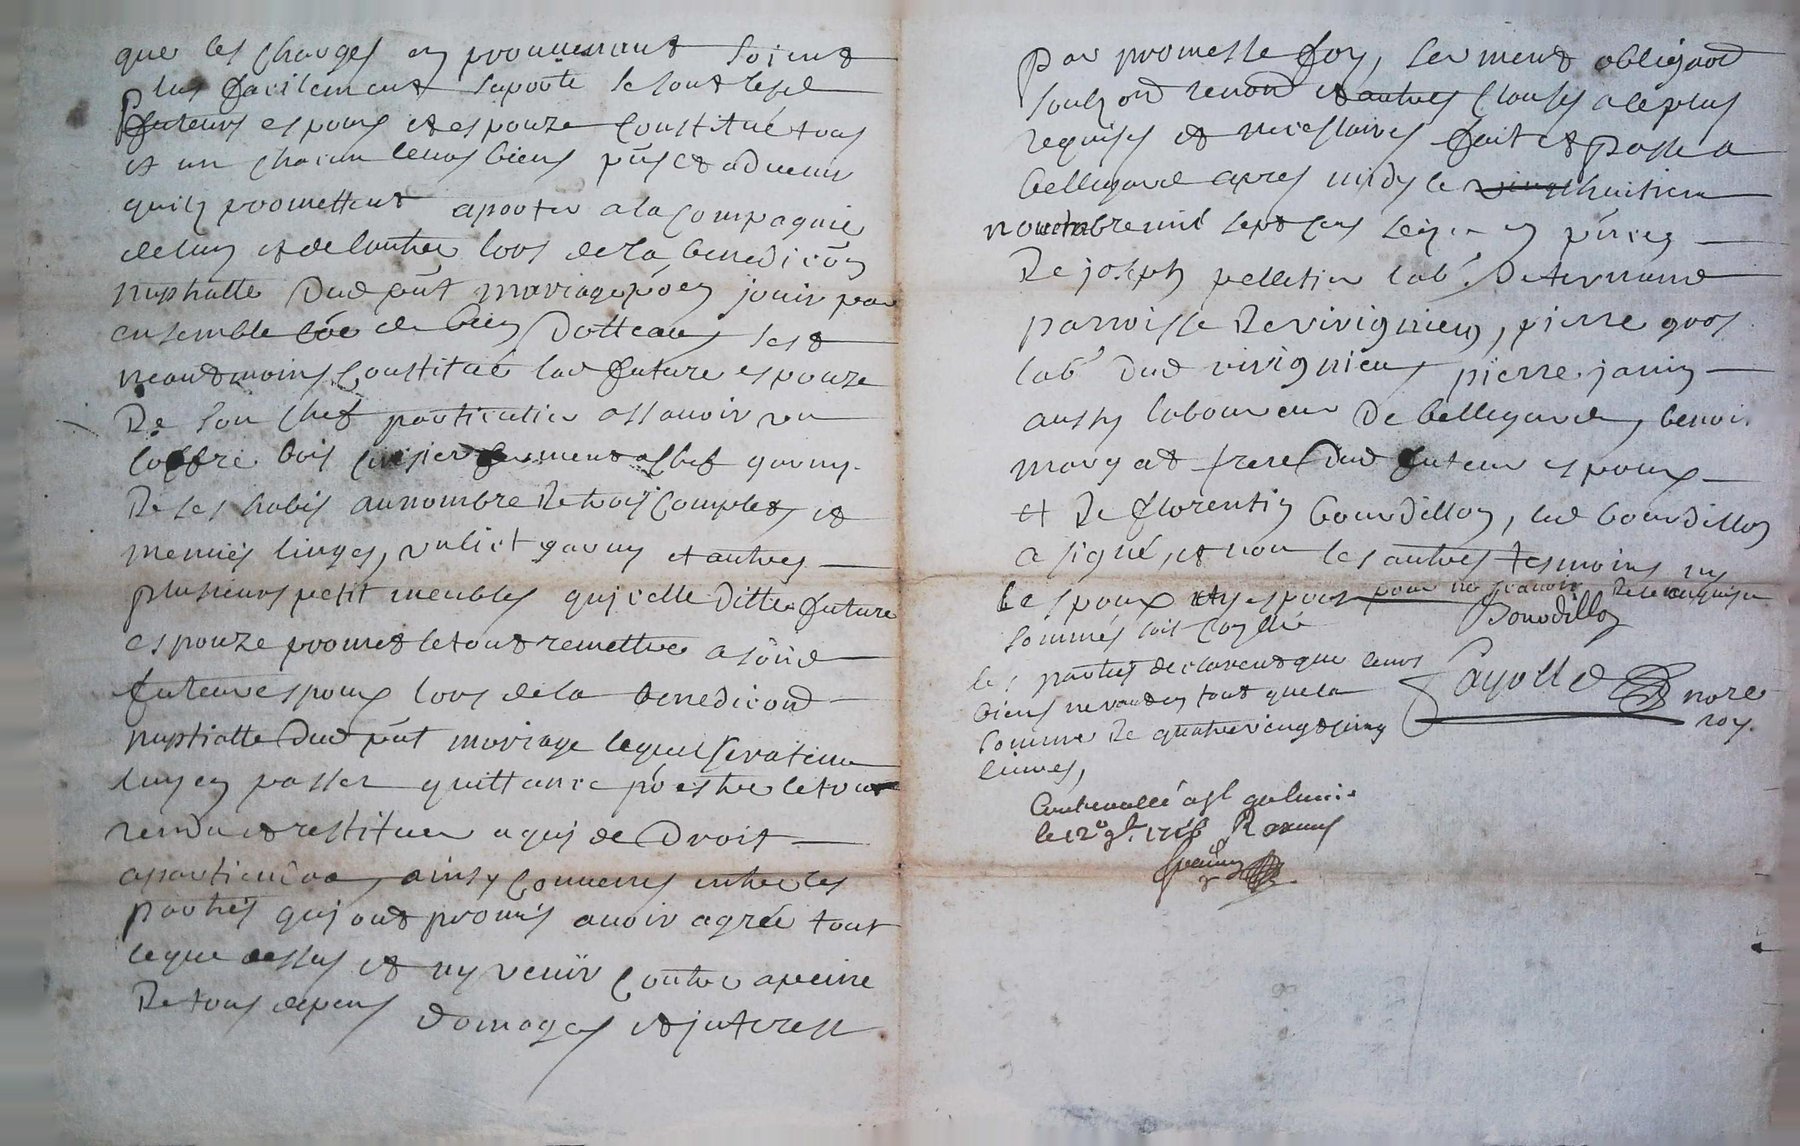 que les charges en prouuenant soient
plus facilement suporté se sont lesd
futeurs espoux et espouze constitué tous
et un chacun leurs biens pñs et aduenir
quilz promettent aporter a la compagnie
de lun et de lautre lors de la benedicõn
nuptialle dud pñt mariage põ en jouir par
ensemble cõe de bien dotteaux, sest
neantmoins constitué lad future espouze
de son chef particulier assauoir un
coffre bois cerisier ferment a clef garny
de ses habis au nombre de trois complets et
menues linges, un lict garny et autres
plusieurs petit meubles quicelle ditte future
espouze promet le tout remettre a sond
futeur espoux lors de la benedicond
nuptialle dud pñt mariage lequel sera tenu
luy en passer quittance põ estre le tout
rendu et restituer a qui de droit
apartiendra, ainsy conuenus entre les
parties qui ont promis auoir agréé tout
ce que dessus et ny venir contre a peine
de tous depens domages et interest
Par promesse foy, serment obligaõn
soubz on renon et autres clauses a le plus
requises et necessaires fait et passé a
bellegarde apres midy le huitieme
nouembre mil sept cens seize en pñces
de joseph pelletier lab. de ternand
parroisse de virignieu, pierre gros
lab. dud virignieu, pierre janin
aussy laboureur de bellegarde, benoi
margat frere dud futeur espoux
et de florentin bourdillon, led bourdillon
a signé, et non les autres tesmoins ny
lespoux et espouse pour ne scauoir de ce enquis et
sommés soit
Bourdillon
les parties declarent que leurs
biens ne vaudent tout que la
somme de quatre vingt cinq
liures,
Fayolle nore
roy.
Controllé a
le 12e 9bre 1716 R